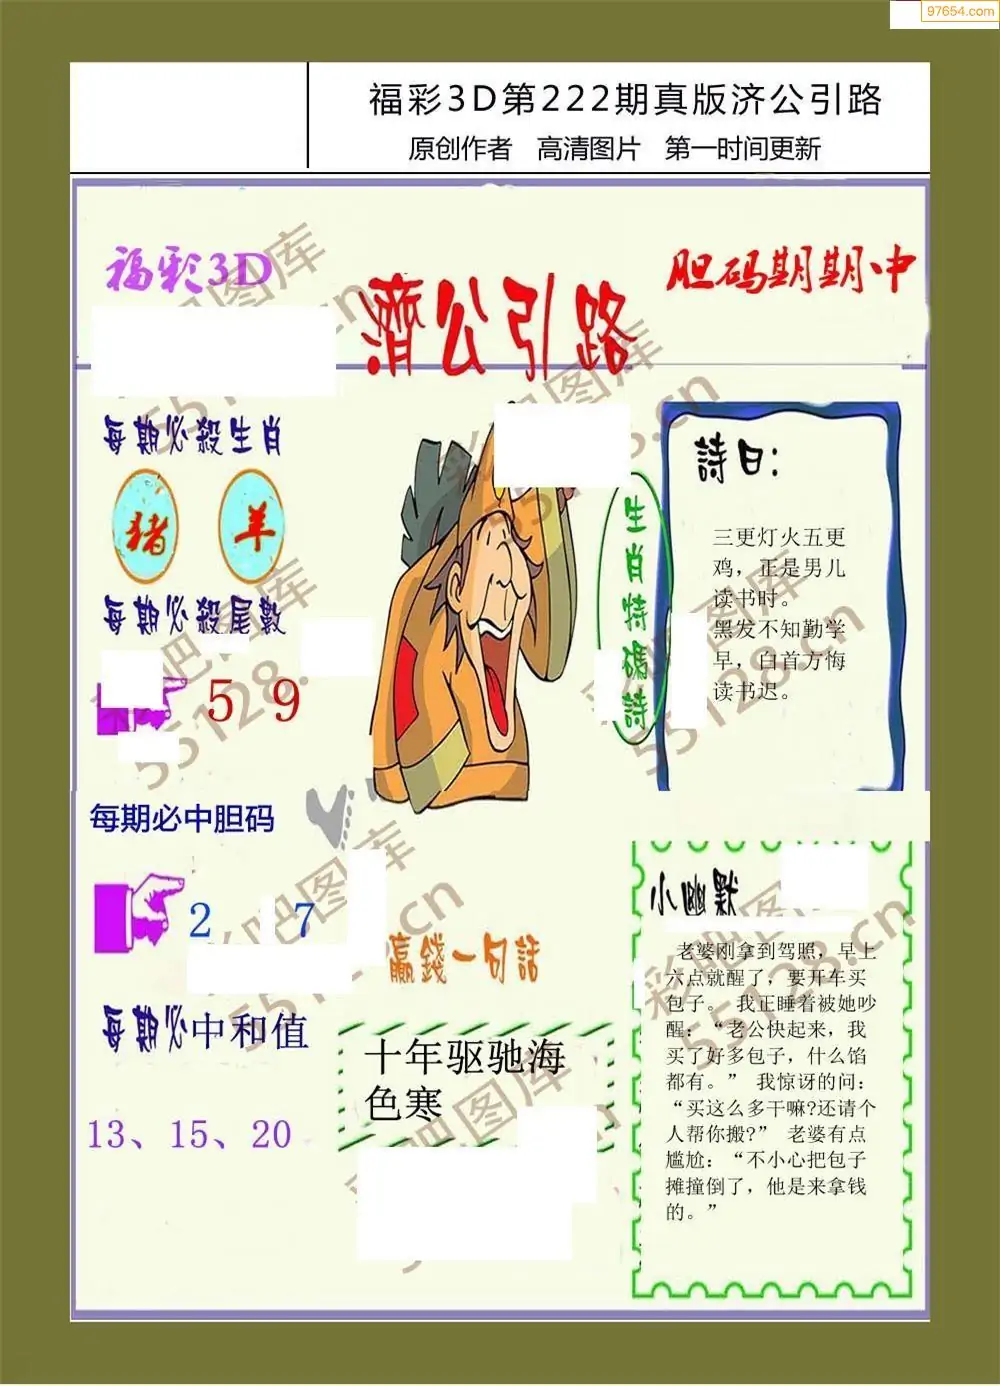 97654.com
福彩3D第222期真版济公引路
原创作者 高清图片 第一时间更新
福彩3D
濟公引路
胆码期期中
每期必殺生肖
猪 羊
每期必殺尾數
5 9
每期必中胆码
2 7
每期必中和值
13、15、20
生肖特碼詩
詩曰:
三更灯火五更
鸡，正是男儿
读书时。
黑发不知勤学
早，白首方悔
读书迟。
赢錢一句話
十年驱驰海
色寒
小幽默
老婆刚拿到驾照，早上
六点就醒了，要开车买
包子。 我正睡着被她吵
醒：“老公快起来，我
买了好多包子，什么馅
都有。” 我惊讶的问：
“买这么多干嘛?还请个
人帮你搬?” 老婆有点
尴尬：“不小心把包子
摊撞倒了，他是来拿钱
的。”
彩吧图库
55128.cn